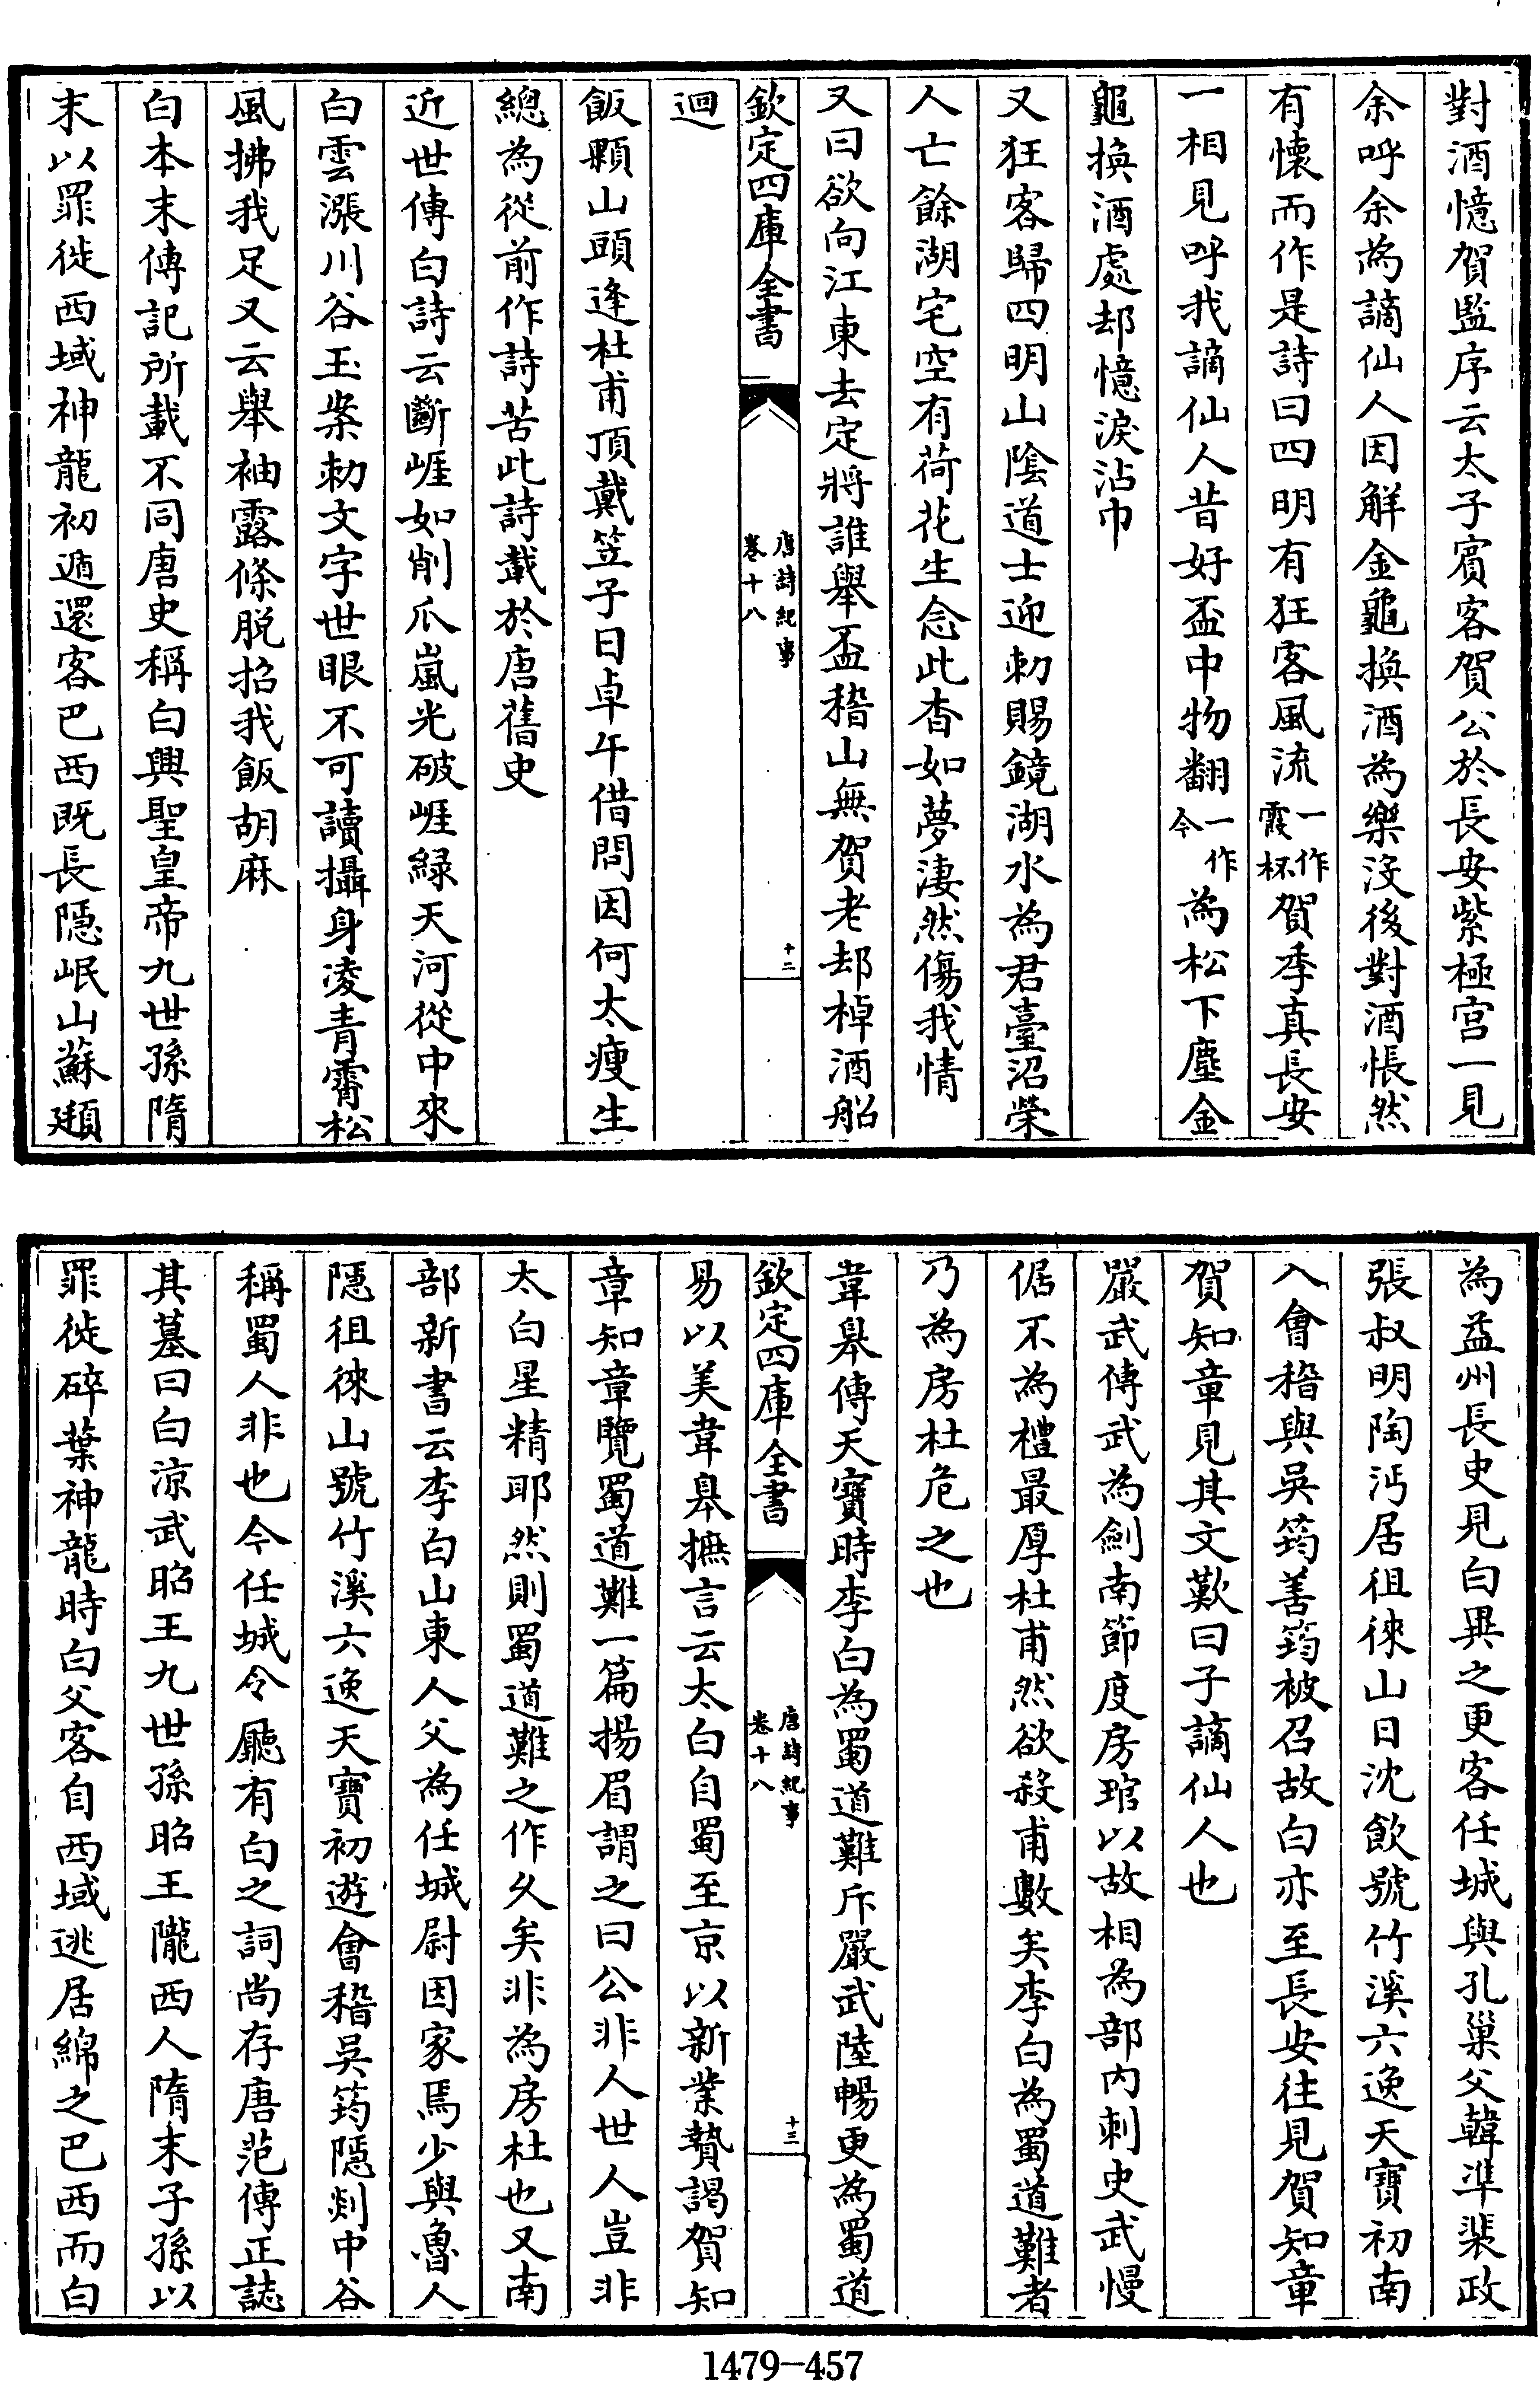 對酒憶賀監序云太子賓客賀公於長安紫極宫一見
余呼余為謫仙人因解金龜換酒為樂沒後對酒悵然
有懷而作是詩曰四明有狂客風流一作霞杯賀季真長安
一相見呼我謫仙人昔好盃中物翻一作今為松下塵金
龜換酒處却憶淚沾巾
又狂客歸四明山陰道士迎勅賜鏡湖水為君臺沼榮
人亡餘湖宅空有荷花生念此杳如夢淒然傷我情
又曰欲向江東去定將誰舉盃稽山無賀老却棹酒船
欽定四庫全書 唐詩紀事 卷十八 十二
迴
飯顆山頭逢杜甫頂戴笠子日卓午借問因何太瘦生
總為從前作詩苦此詩載於唐舊史
近世傳白詩云斷崕如削爪嵐光破崕緑天河從中來
白雲漲川谷玉案勅文字世眼不可讀攝身凌青霄松
風拂我足又云舉袖露條脱招我飯胡麻
白本末傳記所載不同唐史稱白興聖皇帝九世孫隋
末以罪徙西域神龍初遁還客巴西既長隠岷山蘇頲
為益州長史見白異之更客任城與孔巢父韓凖裴政
張叔明陶沔居徂徠山日沈飲號竹溪六逸天寶初南
入會稽與吳筠善筠被召故白亦至長安往見賀知章
賀知章見其文歎曰子謫仙人也
嚴武傳武為劍南節度房琯以故相為部内刺史武慢
倨不為禮最厚杜甫然欲殺甫數矣李白為蜀道難者
乃為房杜危之也
韋臯傳天寶時李白為蜀道難斥嚴武陸暢更為蜀道
欽定四庫全書 唐詩紀事 卷十八 十三
易以美韋臯摭言云太白自蜀至京以新業贄謁賀知
章知章覽蜀道難一篇揚眉謂之曰公非人世人豈非
太白星精耶然則蜀道難之作久矣非為房杜也又南
部新書云李白山東人父為任城尉因家焉少與魯人
隠徂徠山號竹溪六逸天寶初遊會稽吳筠隠剡中谷
稱蜀人非也今任城令廳有白之詞尚存唐范傳正誌
其墓曰白涼武昭王九世孫昭王隴西人隋末子孫以
罪徙碎葉神龍時白父客自西域逃居綿之巴西而白
1479-457